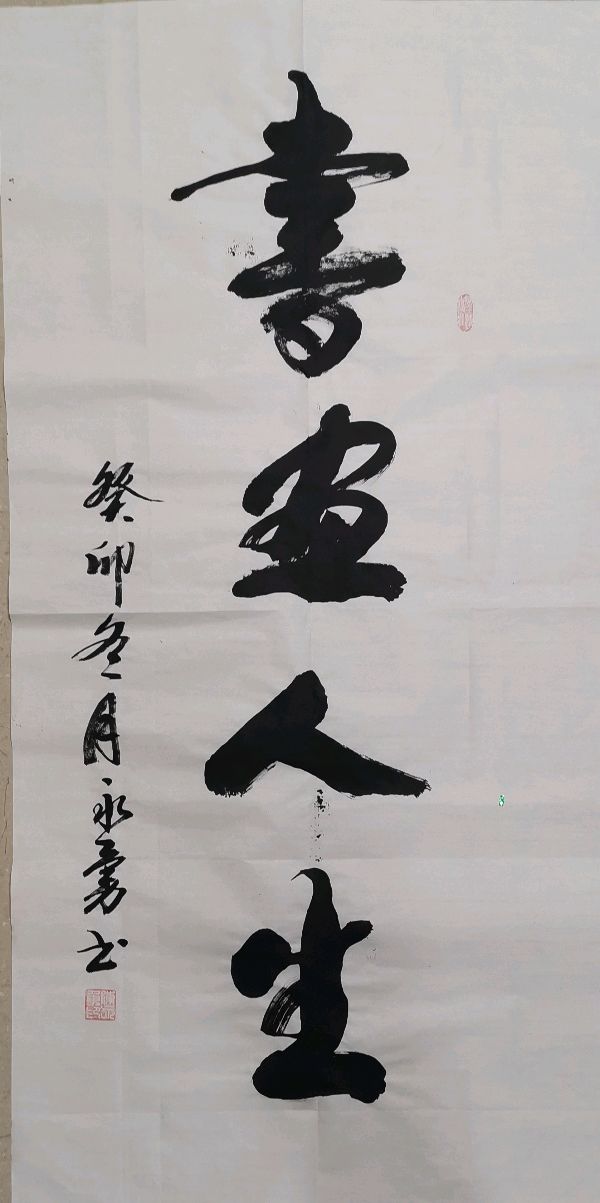 書畫人生
癸卯冬月永勇书